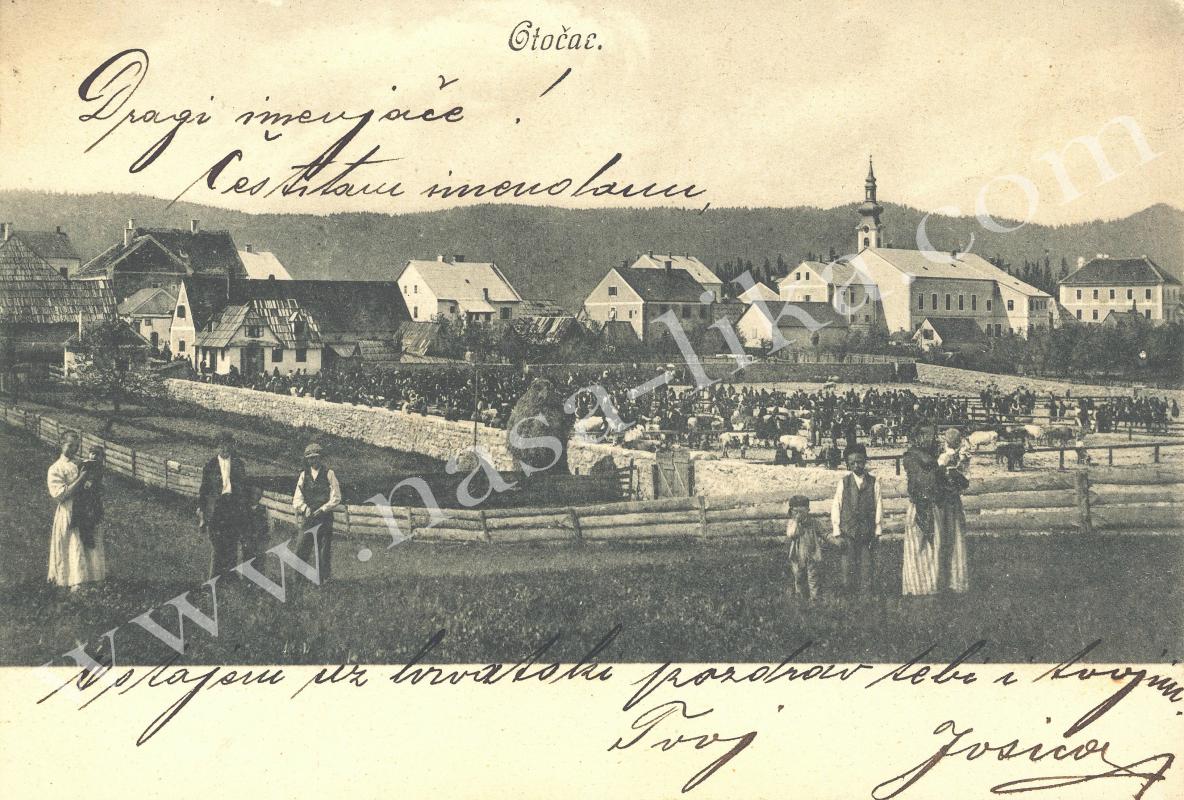 Otočac.
Dragi imenjače!
Čestitam imendanu,
Ostajem uz hrvatski pozdrav tebi i tvojim.
Tvoj Josica
www.nasa-lika.com